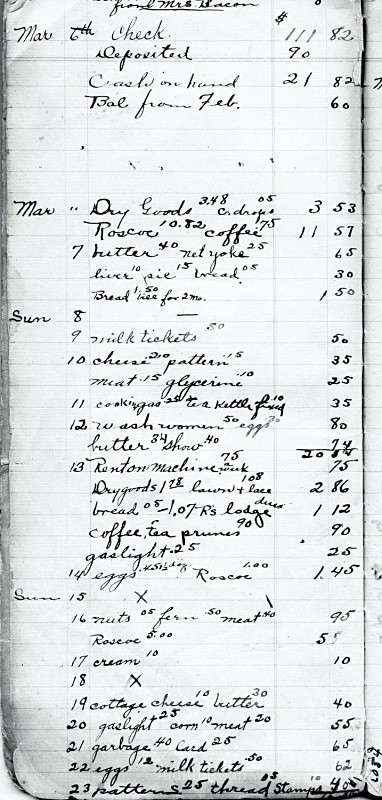 from Mrs Bacon
Mar 6th Check. $ 111 82
Deposited 90
Cash on hand 21 82
Bal from Feb. 60
Mar " Dry Goods 3.48 C. drops 05 3 53
Roscoe 10.82 coffee 75 11 57
7 butter 40 net yoke 25 65
liver 10 pie 15 bread 05 30
Bread 1.50 for 2 mo. 1 50
Sun 8 —
9 milk tickets 50 50
10 cheese 20 pattern 15 35
meat .15 glycerine 10 25
11 cooking gas 25 tea kettle fixed 10 35
12 wash women 50 eggs 30 80
butter 34 show 40 74
20 04
13 Rent on machine 75 75
Drygoods 1 78 lawn + lace 1 08 2 86
bread 05 - 1,07 R's lodge dues 1 12
coffee, tea prunes 90 90
gaslight 25 25
14 eggs .45 Roscoe 1.00 1.45
Sun 15 X
16 nuts 05 fern .50 meat 40 95
Roscoe 5.00 5
17 cream 10 10
18 X
19 cottage cheese 10 butter 30 40
20 gaslight 25 corn 10 meat 20 55
21 garbage 40 Card 25 65
22 eggs 12 milk tickets .50 62
23 pattern 25 thread 05 Stamps 10 40